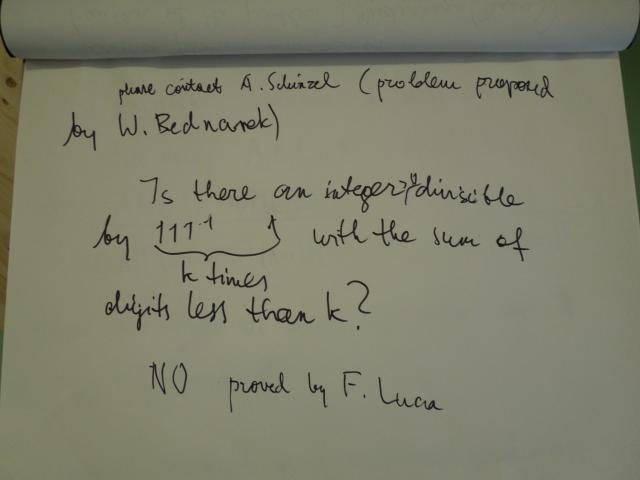 please contact A. Schinzel (problem proposed
by W. Bednarek)
Is there an integer >0 divisible
by 111...1 with the sum of
k times
digits less than k?
NO proved by F. Luca